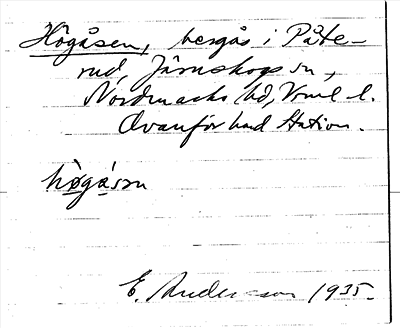 Högåsen, bergås i Påte-
rud, Järnskogs sn,
Nordmarks hd, Vrml l.
Ovanför hud Station.
hö̀gåsen
E. Anderson 1935.